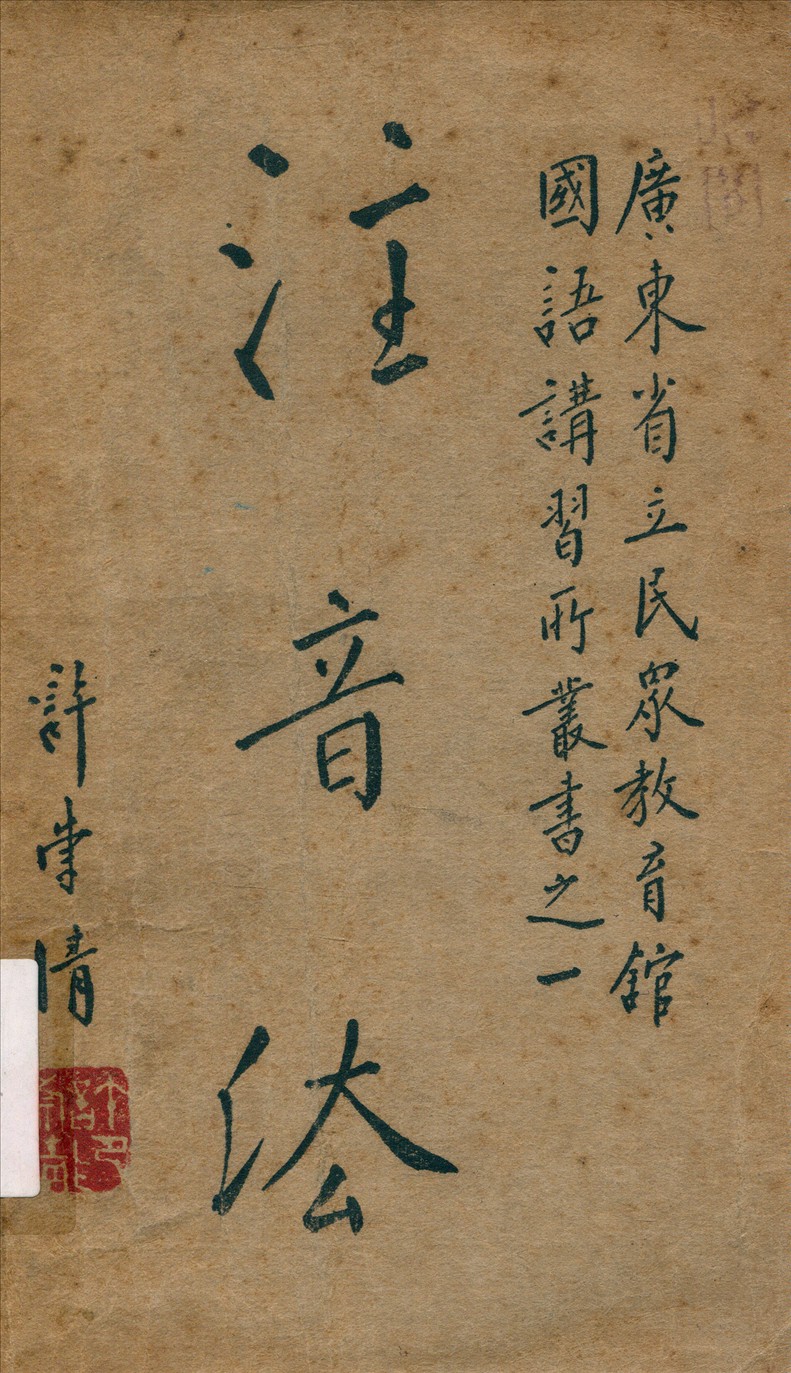 廣東省立民眾教育館
國語講習所叢書之一
注音法
許崇清